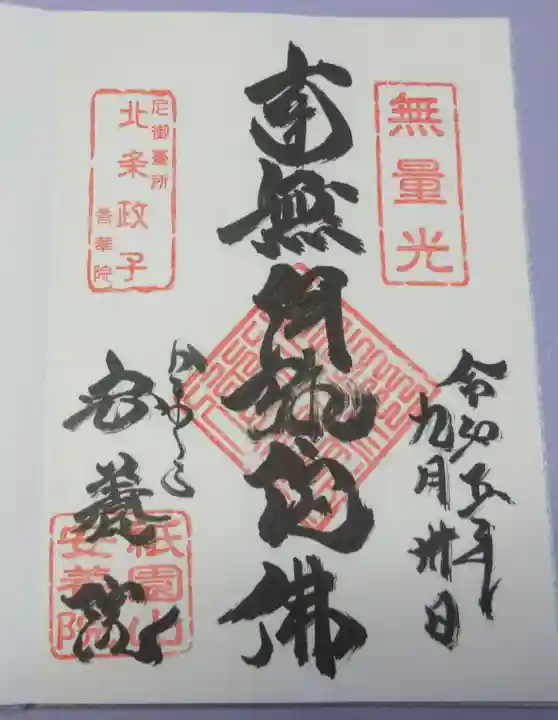 無量光
令和五年
九月卅日
南無阿弥陀佛
かまくら
安養院
祇園山
安養院
尼御臺所
北条政子
香華院